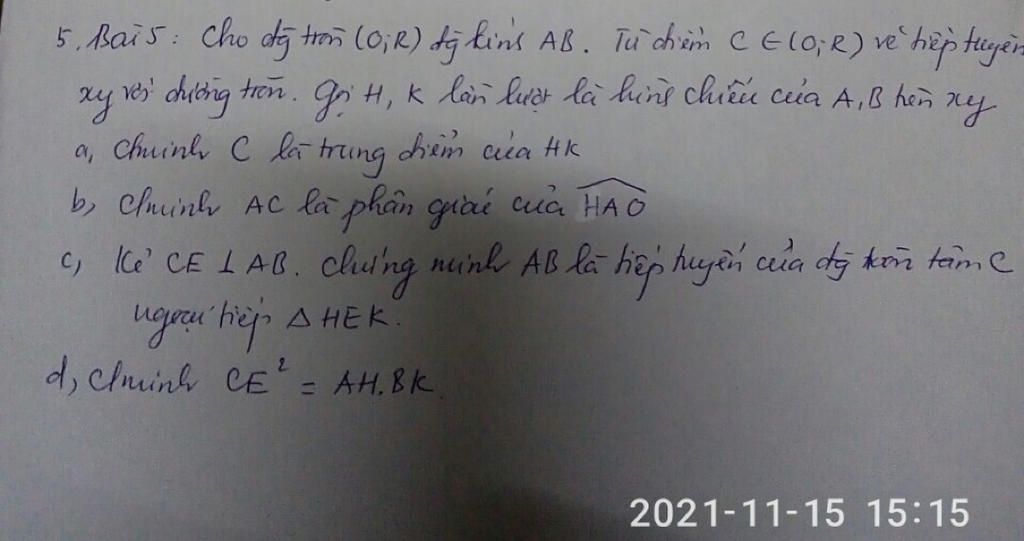 5, Bài 5: Cho đg tròn (O;R) đg kính AB. Từ điểm C ∈ (O;R) vẽ tiếp tuyến
xy với đường tròn. Gọi H, K lần lượt là hình chiếu của A, B trên xy
a, Cminh C là trung điểm của HK
b, Cminh AC là phân giác của HAO
c, Kẻ CE ⊥ AB. Chứng minh AB là tiếp tuyến của đg tròn tâm C
ngoại tiếp Δ HEK.
d, Cminh CE² = AH.BK.
2021-11-15 15:15